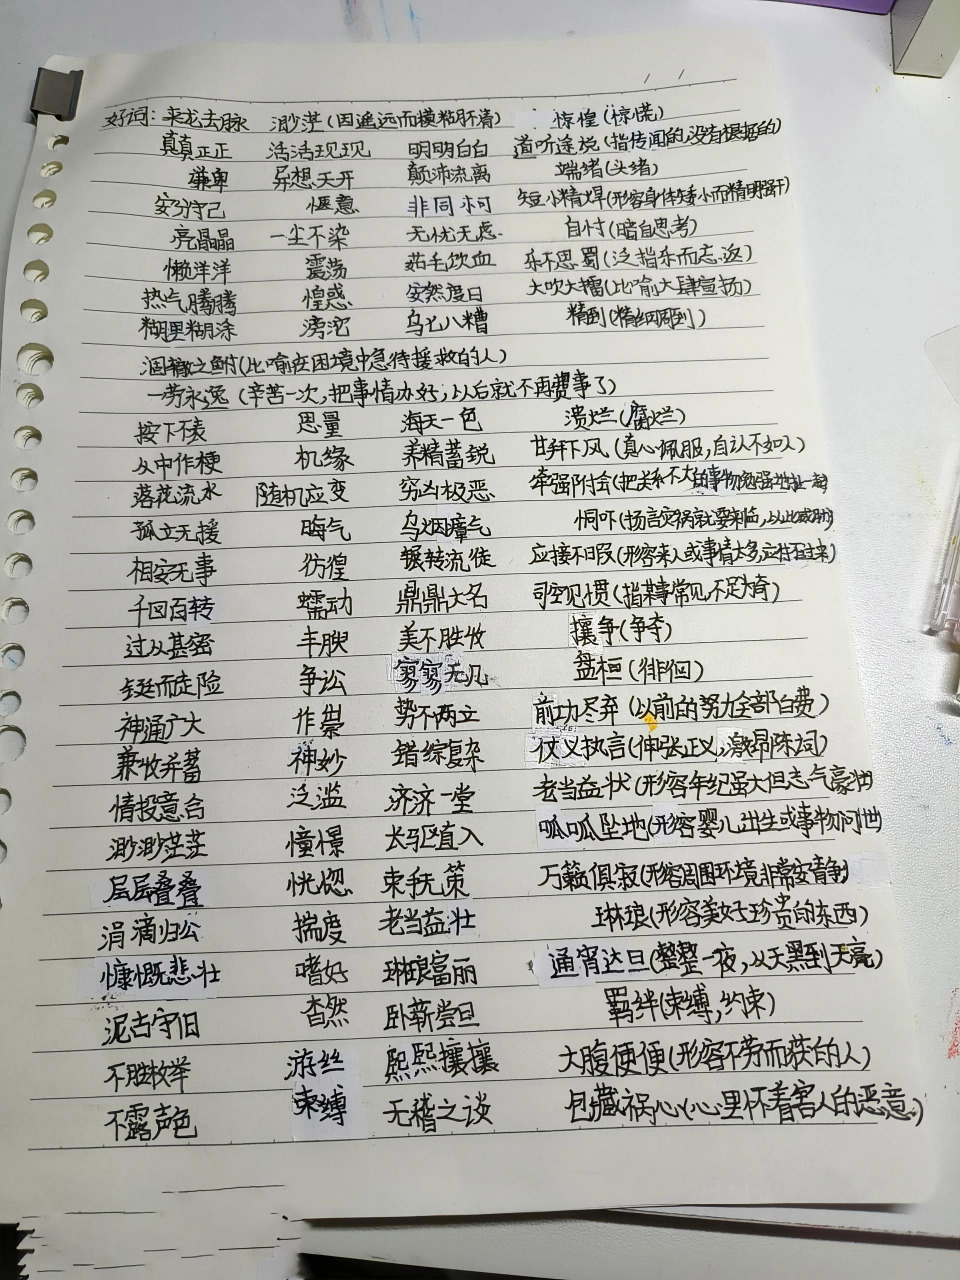 好词:来龙去脉 渺茫(因遥远而模糊不清) 惊惶(惊慌)
真真正正 活活现现 明明白白 道听途说(指传闻的,没有根据的)
谦卑 异想天开 颠沛流离 端绪(头绪)
安分守己 惬意 非同小可 短小精悍(形容身体矮小而精明强干)
亮晶晶 一尘不染 无忧无虑 自忖(暗自思考)
懒洋洋 震荡 茹毛饮血 乐不思蜀(泛指乐而忘返)
热气腾腾 惶惑 安然度日 大吹大擂(比喻大肆宣扬)
糊里糊涂 滂沱 乌七八糟 精到(精细周到)
涸辙之鲋(比喻在困境中急待援救的人)
一劳永逸(辛苦一次,把事情办好,以后就不再费事了)
按下不表 思量 海天一色 溃烂(腐烂)
从中作梗 机缘 养精蓄锐 甘拜下风(真心佩服,自认不如人)
落花流水 随机应变 穷凶极恶 牵强附会(把关系不大的事物勉强地扯一起)
孤立无援 晦气 乌烟瘴气 恫吓(扬言灾祸就要来临,以此威胁)
相安无事 彷徨 辗转流徙 应接不暇(形容来人或事情太多,应付不过来)
千回百转 蠕动 鼎鼎大名 司空见惯(指某事常见,不足为奇)
过从甚密 丰腴 美不胜收 攘争(争夺)
铤而走险 争讼 寥寥无几 盘桓(徘徊)
神通广大 作祟 势不两立 前功尽弃(以前的努力全部白费)
兼收并蓄 神妙 错综复杂 仗义执言(伸张正义,激昂陈词)
情投意合 泛滥 济济一堂 老当益壮(形容年纪虽大但志气豪壮)
渺渺茫茫 憧憬 长驱直入 呱呱坠地(形容婴儿出生或事物问世)
层层叠叠 恍惚 束手无策 万籁俱寂(形容周围环境非常安静)
涓滴归公 揣度 老当益壮 琳琅(形容美好珍贵的东西)
慷慨悲壮 嗜好 琳琅富丽 通宵达旦(整整一夜,从天黑到天亮)
泥古守旧 杳然 卧薪尝胆 羁绊(束缚,约束)
不胜枚举 游丝 熙熙攘攘 大腹便便(形容不劳而获的人)
不露声色 束缚 无稽之谈 包藏祸心(心里怀着害人的恶意)